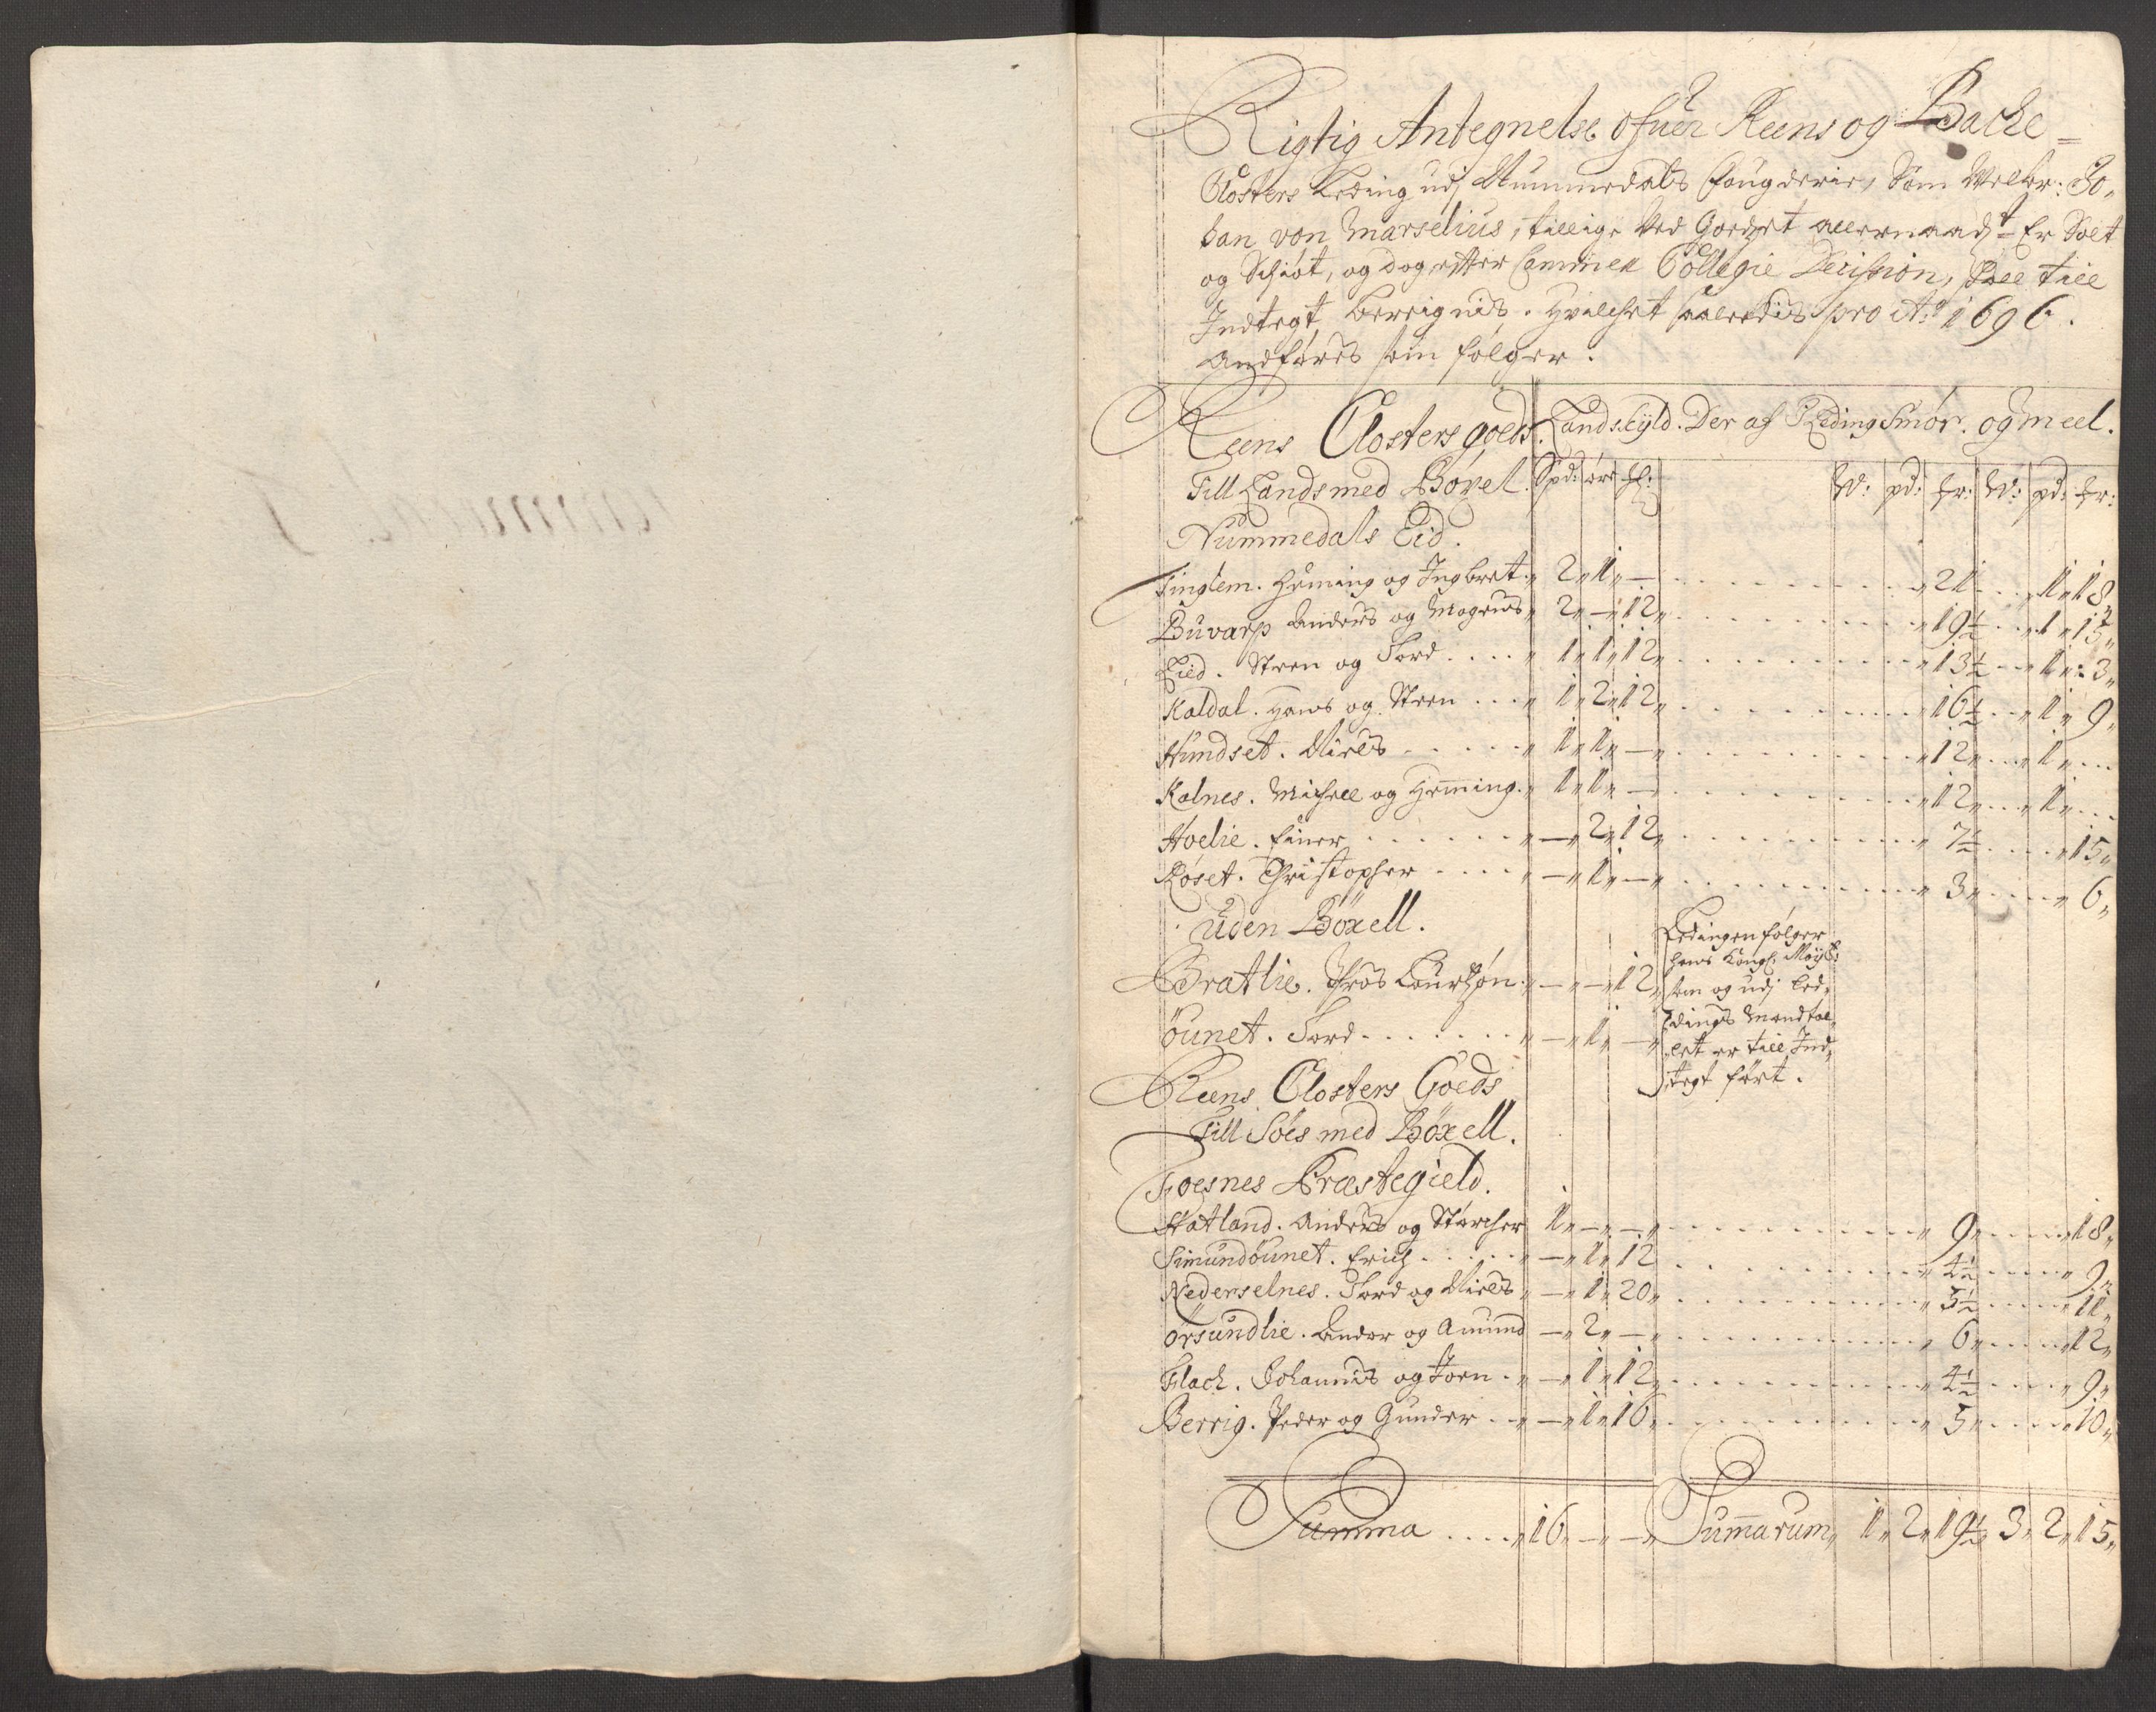 Rigtig Antegnelse ofuer Reens og Backe=
Closters Leding udj Nummedals Fougderie, Som Welbr: Jo,
han von Marselius, tillige Ved Goedset allernaadst Er Solt
og Schiøt, og dog efter Cammer Collegie Decission, skall till
Indtegt bereignis. Hvilchet saaledis pro Ao: 1696.
andføres som følger.
Reens Closters goeds. Landskyld. Der af Leding Smør. og meel.
Till Lands med Böxel. Spd: øre W: pd: W: pd:
Nummedals Eid.
Tinglem. Heming og Ingbret. 2 1 — 21 1 18
Buvarp Anders og Mogens 2 — 12 19½ 1 15
Eid. Steen og Tord 1 1 12 13½ 1 3
Kaldal. Hans og Steen 1 2 12 16½ 1 9
Hundset. Nires 1 1 — 12 1
Kalnes. Michell og Heming. 1 1 — 12 1
Hoelie. Einer — 2 12 7½ 15
Røset. Christopher — 1 — 3 6
uden Böxell.
Bratlie. Sørs — — 12
Ledingen følger
hans Kongl: Mayt:
som og udj Led,
Ledings Mandtal,
let er till Ind,
tegt ført.
öunet. Tord — 1 —
Reens Closters Goeds
Till Söes med Böxell.
Foesnes Præstegield.
Hatland. Anders og Starcher 1 — — 9 18
Simundöunet. Erich — 1 12 4½ 9
Nederselnes. Tord og Nires — 1 20 5½ 11
örsundlie. Ander og Amund — 2 — 6 12
Flach. Johannis og Joen — 1 12 4½ 9
Berrig. Peder og Gunder — 1 16 5 10
Summa 16 — — Summarum 1 2 19½ 3 2 15